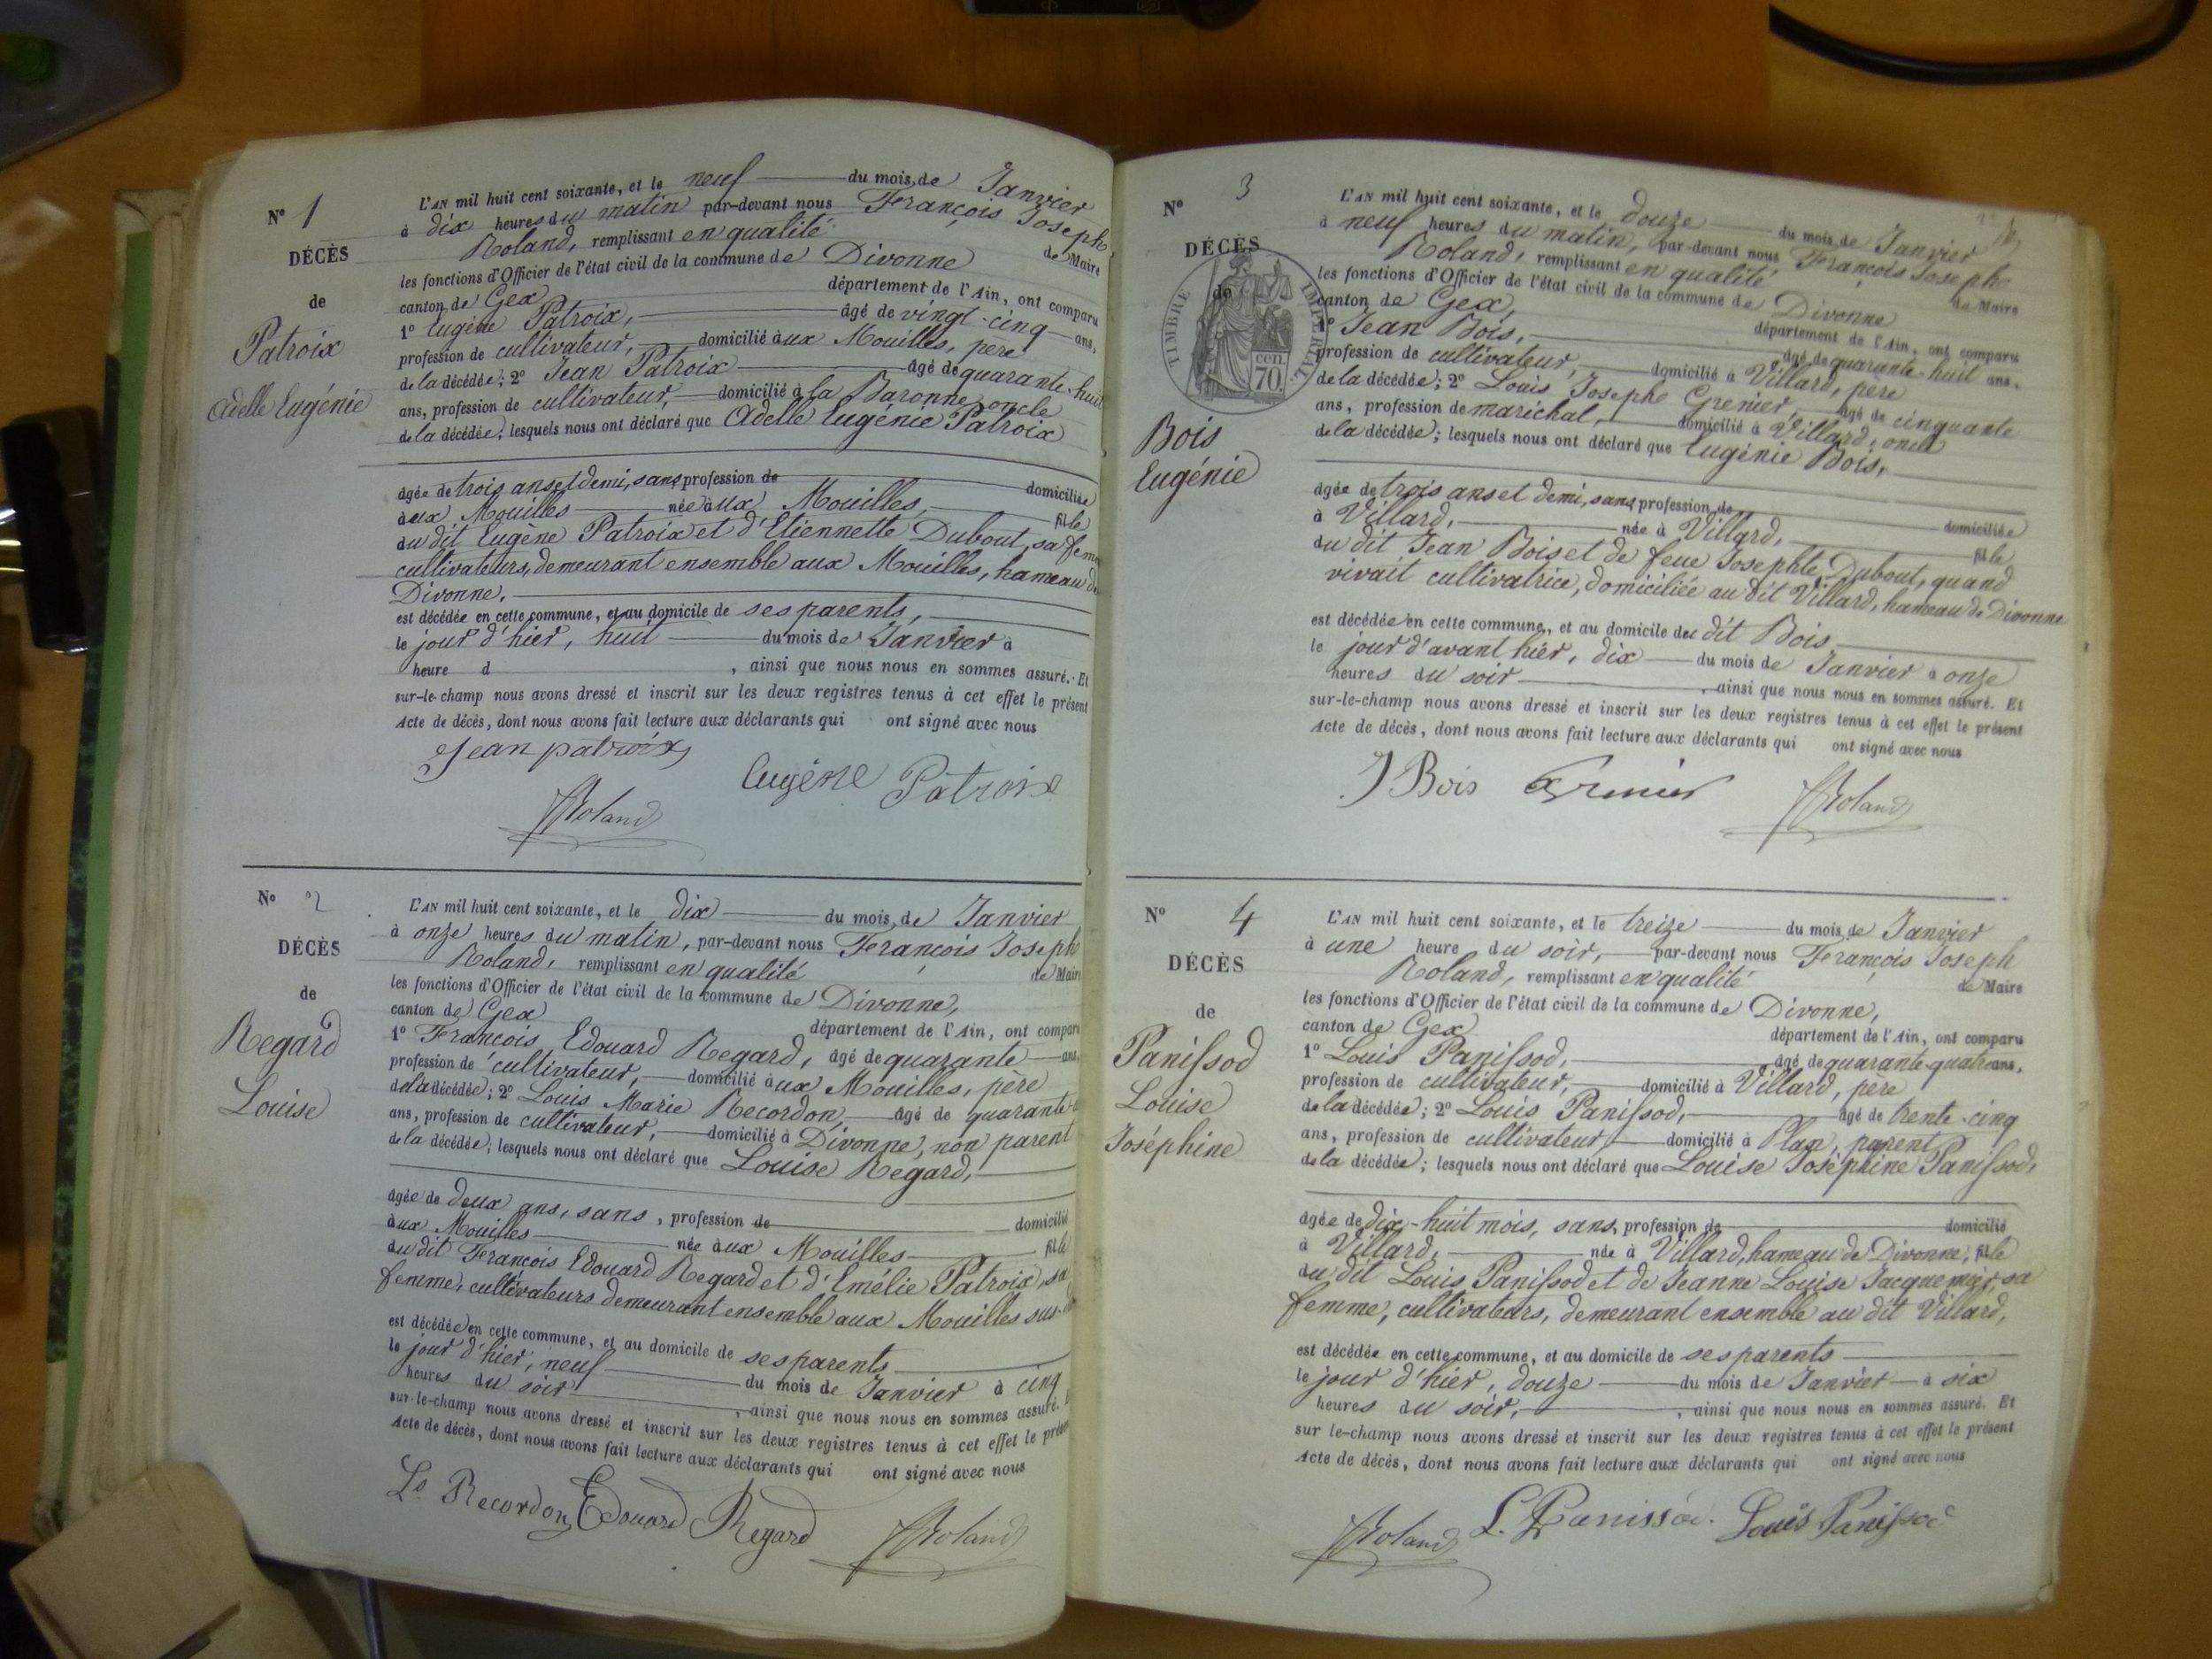 N° 1
DÉCÈS
de
Patroix
Adelle Eugénie
L'AN mil huit cent soixante, et le neuf du mois de Janvier
à dix heures du matin par-devant nous François Joseph
Roland, remplissant en qualité de Maire
les fonctions d'Officier de l'état civil de la commune de Divonne
canton de Gex département de l'Ain, ont comparu
1° Eugène Patroix, âgé de vingt-cinq ans,
profession de cultivateur, domicilié aux Mouilles, père
de la décédée; 2° Jean Patroix âgé de quarante-huit
ans, profession de cultivateur, domicilié à la Baronne, oncle
de la décédée; lesquels nous ont déclaré que Adelle Eugénie Patroix
âgée de trois ans et demi, sans profession de domiciliée
aux Mouilles née aux Mouilles, fille
du dit Eugène Patroix et d'Etiennette Dubout, sa femme
cultivateurs, demeurant ensemble aux Mouilles, hameau de
Divonne.
est décédée en cette commune, et au domicile de ses parents,
le jour d'hier, huit du mois de Janvier à
heure d , ainsi que nous nous en sommes assuré. Et
sur-le-champ nous avons dressé et inscrit sur les deux registres tenus à cet effet le présent
Acte de décès, dont nous avons fait lecture aux déclarants qui ont signé avec nous
Jean patroix
Eugéne Patroix
Roland
N° 2
DÉCÈS
de
Regard
Louise
L'AN mil huit cent soixante, et le dix du mois de Janvier
à onze heures du matin, par-devant nous François Joseph
Roland, remplissant en qualité de Maire
les fonctions d'Officier de l'état civil de la commune de Divonne,
canton de Gex département de l'Ain, ont comparu
1° François Edouard Regard, âgé de quarante ans,
profession de cultivateur, domicilié aux Mouilles, père
de la décédée; 2° Louis Marie Recordon, âgé de quarante
ans, profession de cultivateur, domicilié à Divonne, non parent
de la décédée; lesquels nous ont déclaré que Louise Regard,
âgée de deux ans, sans, profession de domicilié
aux Mouilles née aux Mouilles fille
du dit François Edouard Regard et d'Emélie Patroix, sa
femme, cultivateurs demeurant ensemble aux Mouilles sus-
est décédée en cette commune, et au domicile de ses parents
le jour d'hier, neuf du mois de Janvier à cinq
heures du soir , ainsi que nous nous en sommes assuré. E
sur-le-champ nous avons dressé et inscrit sur les deux registres tenus à cet effet le présen
Acte de décès, dont nous avons fait lecture aux déclarants qui ont signé avec nous
Ls Recordon Edouard Regard Roland
N° 3
DÉCÈS
de
TIMBRE IMPERIAL
cen. 70.
Bois
Eugénie
L'AN mil huit cent soixante, et le douze du mois de Janvier
à neuf heures du matin, par-devant nous François Josephe
Roland, remplissant en qualité de Maire
les fonctions d'Officier de l'état civil de la commune de Divonne
canton de Gex, département de l'Ain, ont comparu
1° Jean Bois, âgé de quarante-huit ans,
profession de cultivateur, domicilié à Villard, père
de la décédée; 2° Louis Josephe Grenier, âgé de cinquante
ans, profession de maréchal, domicilié à Villard, oncle
de la décédée; lesquels nous ont déclaré que Eugénie Bois,
âgée de trois ans et demi, sans, profession de domiciliée
à Villard, née à Villard, fille
du dit Jean Bois et de feue Josephte Dubout, quand
vivait cultivatrice, domiciliée au dit Villard, hameau de Divonne
est décédée en cette commune, et au domicile du dit Bois
le jour d'avant hier, dix du mois de Janvier à onze
heures du soir , ainsi que nous nous en sommes assuré. Et
sur-le-champ nous avons dressé et inscrit sur les deux registres tenus à cet effet le présent
Acte de décès, dont nous avons fait lecture aux déclarants qui ont signé avec nous
J Bois Grenier Roland
N° 4
DÉCÈS
de
Panissod
Louise
Joséphine
L'AN mil huit cent soixante, et le treize du mois de Janvier
à une heure du soir, par-devant nous François Joseph
Roland, remplissant en qualité de Maire
les fonctions d'Officier de l'état civil de la commune de Divonne,
canton de Gex département de l'Ain, ont comparu
1° Louis Panissod, âgé de quarante-quatre ans,
profession de cultivateur, domicilié à Villard, père
de la décédée; 2° Louis Panissod, âgé de trente-cinq
ans, profession de cultivateur, domicilié à Plan, parent
de la décédée; lesquels nous ont déclaré que Louise Joséphine Panissod,
âgée de dix-huit mois, sans, profession de domicilié
à Villard, née à Villard, hameau de Divonne, fille
du dit Louis Panissod et de Jeanne Louise Jacquemier, sa
femme, cultivateurs, demeurant ensemble au dit Villard,
est décédée en cette commune, et au domicile de ses parents
le jour d'hier, douze du mois de Janvier à six
heures du soir, , ainsi que nous nous en sommes assuré. Et
sur le-champ nous avons dressé et inscrit sur les deux registres tenus à cet effet le présent
Acte de décès, dont nous avons fait lecture aux déclarants qui ont signé avec nous
Roland L. Panissod. Louis Panissod